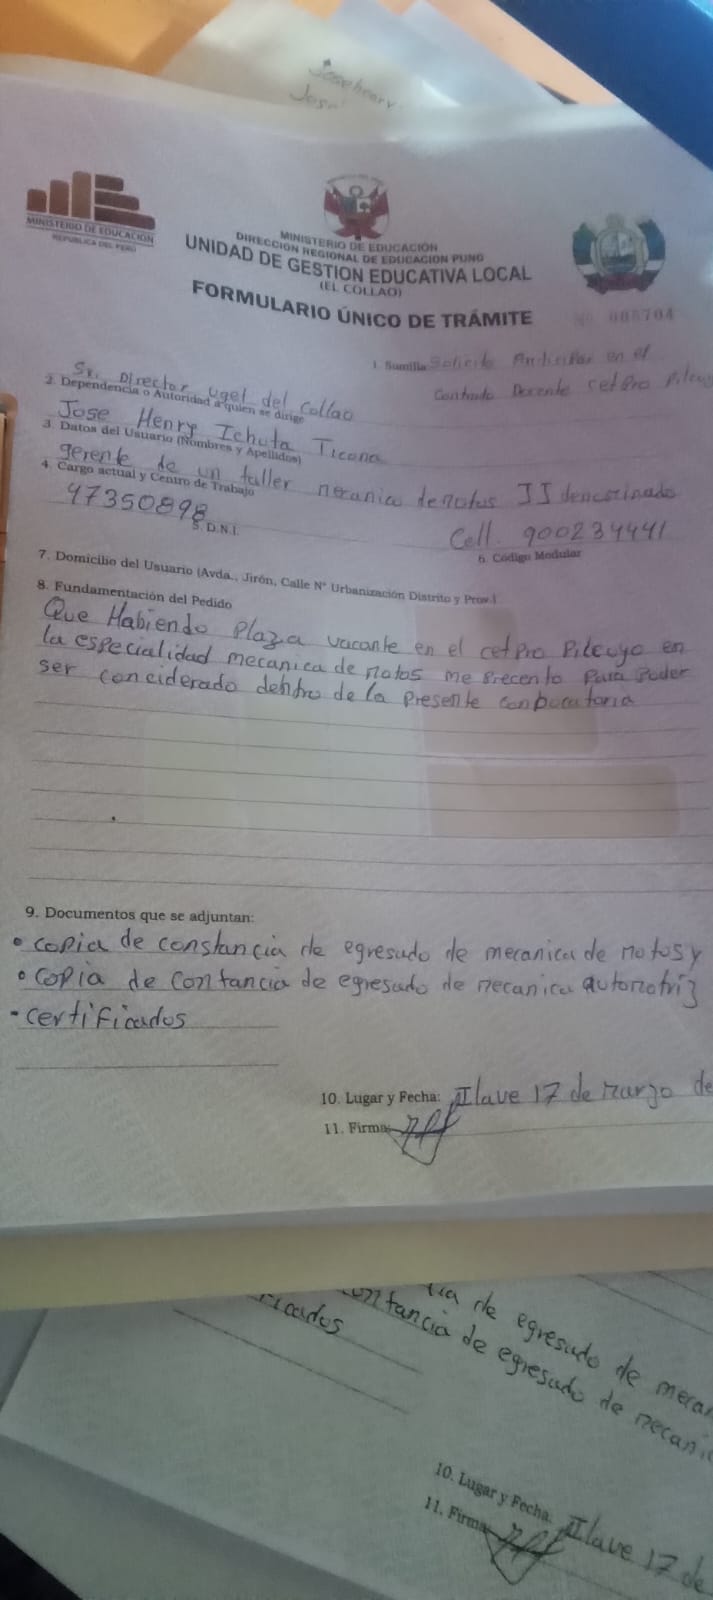 Jose henry
Jose
MINISTERIO DE EDUCACIÓN
REPUBLICA DEL PERÚ
MINISTERIO DE EDUCACIÓN
DIRECCIÓN REGIONAL DE EDUCACIÓN PUNO
UNIDAD DE GESTION EDUCATIVA LOCAL
(EL COLLAO)
FORMULARIO ÚNICO DE TRÁMITE
Nº 005704
1. Sumilla Solicito en el
Contrato Docente cetpro Pilcuyo
Sr. Director Ugel del Collao
2. Dependencia o Autoridad a quien se dirige
Jose Henry Ichuta Ticona
3. Datos del Usuario (Nombres y Apellidos)
gerente de un taller mecanica de motos JJ
4. Cargo actual y Centro de Trabajo
47350898
5. D.N.I.
Cell. 900234441
6. Código Modular
7. Domicilio del Usuario (Avda., Jirón, Calle N° Urbanización Distrito y Prov.)
8. Fundamentación del Pedido
Que Habiendo Plaza vacante en el cetpro Pilcuyo en
la especialidad mecanica de motos me precento para poder
ser conciderado dentro de la presente conbocatoria
9. Documentos que se adjuntan:
• copia de constancia de egresado de mecanica de motos y
• copia de contancia de egresado de mecanica automotriz
- certificados
10. Lugar y Fecha: Ilave 17 de marzo de
11. Firma:
cia de egresado de mecan
ontancia de egresado de mecani
ficados
10. Lugar y Fecha. Ilave 17 de
11. Firma